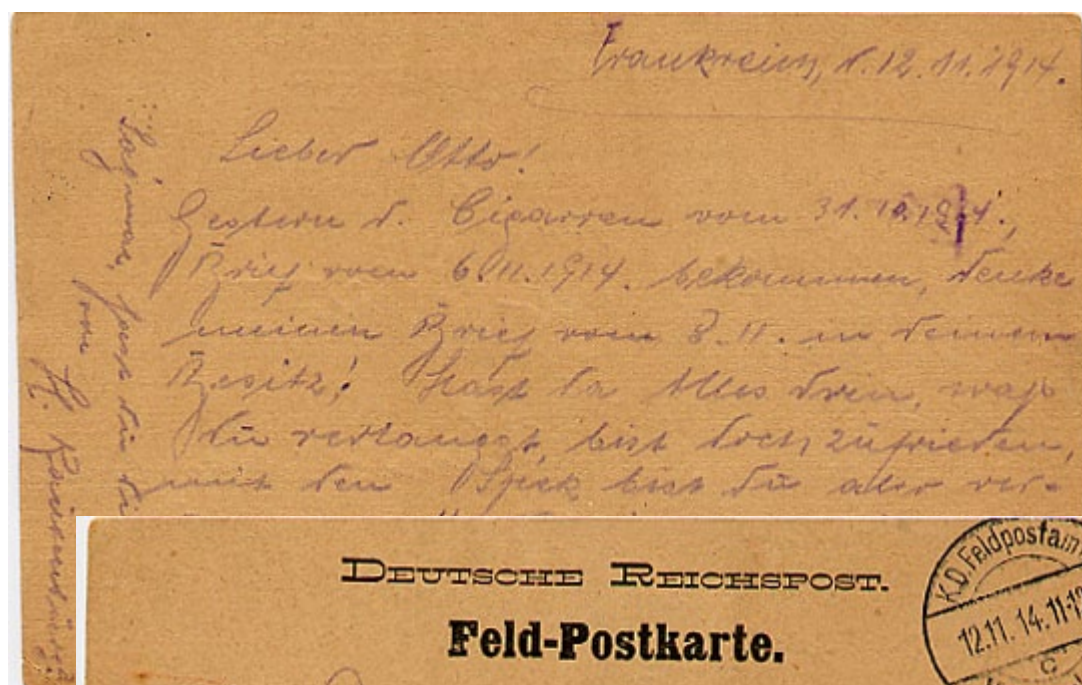 Frankreich, d. 12.11.1914.
Lieber Otto!
Gestern d. Cigarren vom 31.10.1914.,
Brief vom 6.11.1914. bekommen, denke
meinen Brief vom 3.11. in deinem
Besitz! Hast da Alles drin, was
du verlangst, bist doch zufrieden,
mit den Speck bist du aber ver-
hast du
von
H.
DEUTSCHE REICHSPOST.
Feld-Postkarte.
K.D. Feldpostam
12.11.14. 11-12
c